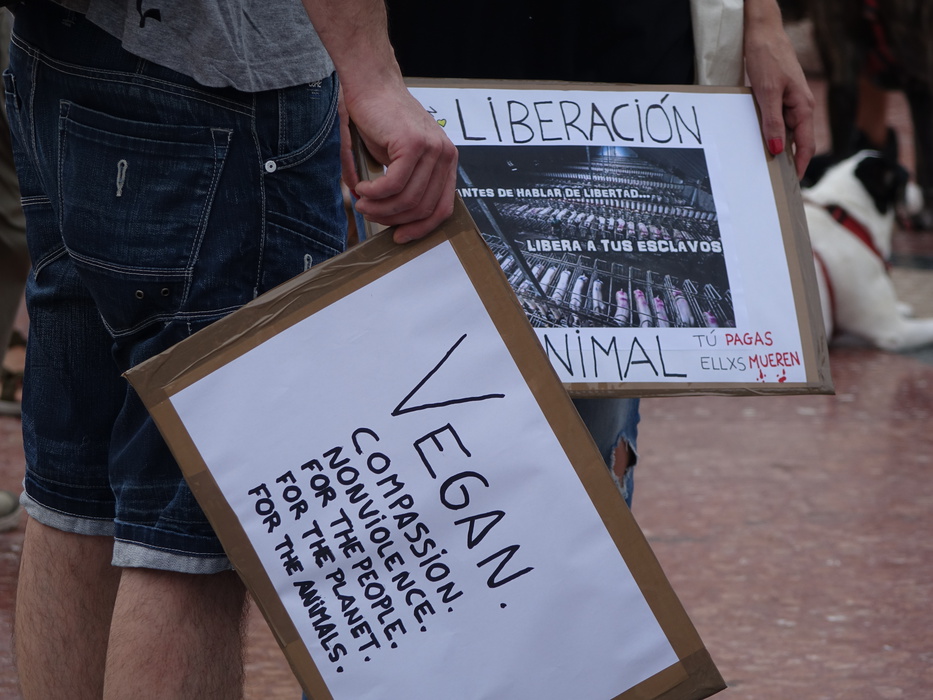 LIBERACIÓN
ANTES DE HABLAR DE LIBERTAD...
LIBERA A TUS ESCLAVOS
ANIMAL
TÚ PAGAS
ELLXS MUEREN
VEGAN.
COMPASSION.
NONVIOLENCE.
FOR THE PEOPLE.
FOR THE PLANET.
FOR THE ANIMALS.